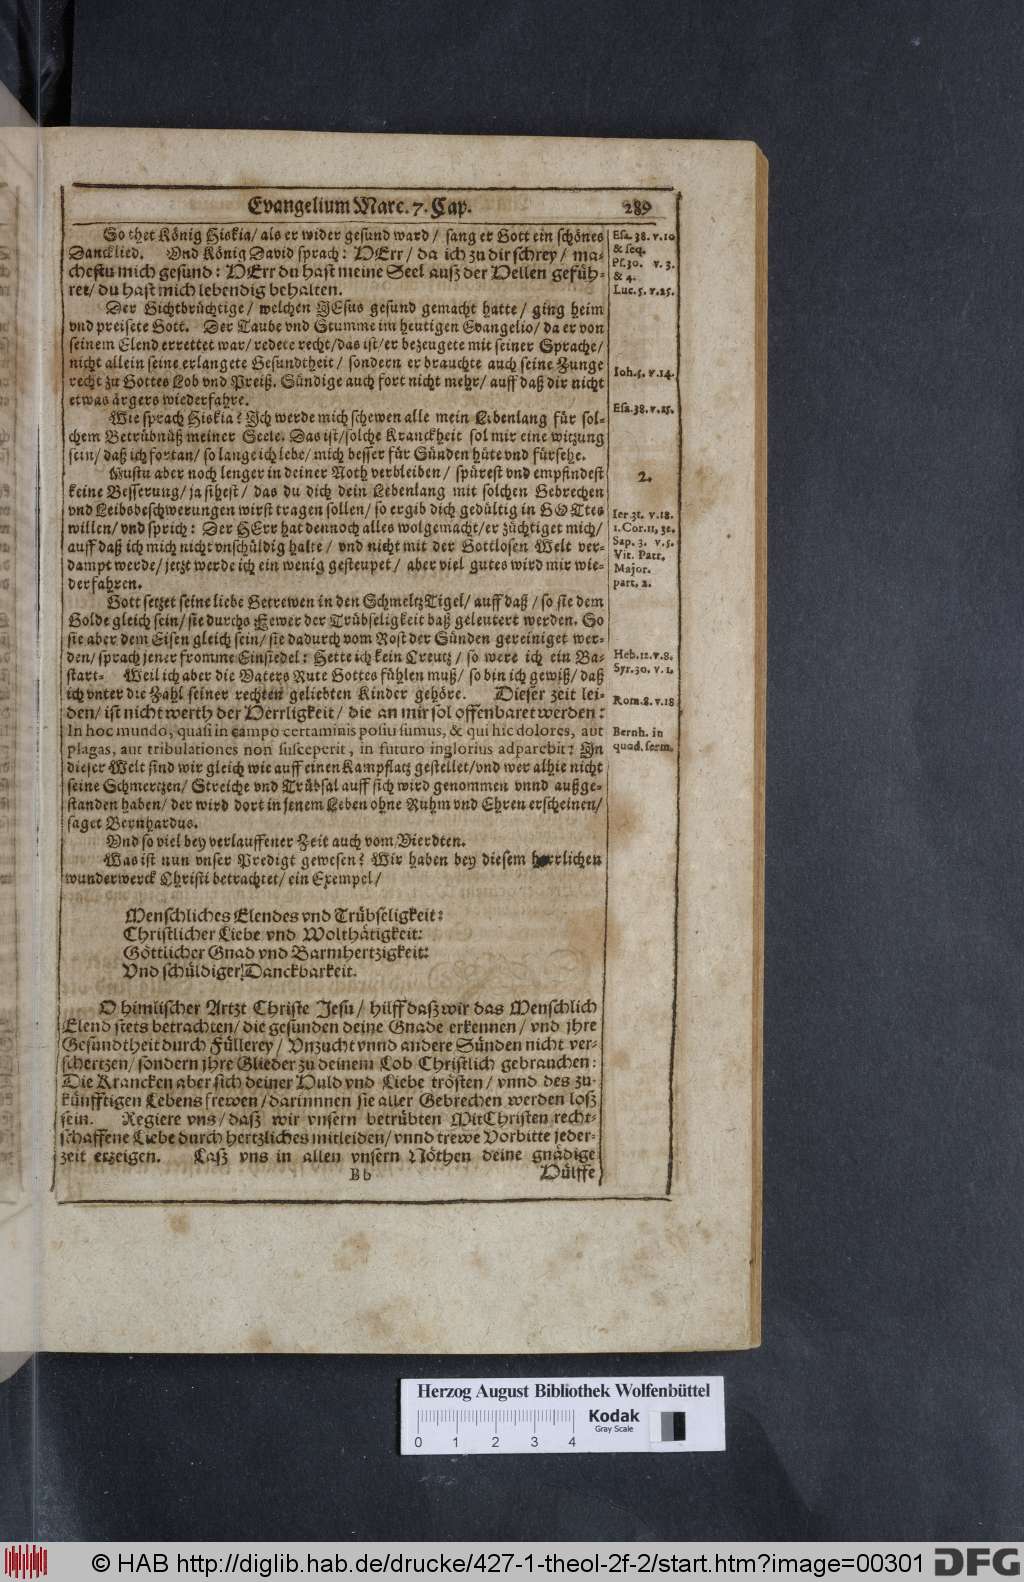 Evangelium Marc. 7. Cap. 289
So thet König Hiskia/ als er wider gesund ward/ sang er Gott ein schönes
Dancklied. Vnd König David sprach: HErr/ da ich zu dir schrey/ ma-
chestu mich gesund: HErr du hast meine Seel auß der Hellen gefüh-
ret/ du hast mich lebendig behalten.
Der Gichtbrüchtige/ welchen JEsus gesund gemacht hatte/ ging heim
vnd preisete Gott. Der Taube vnd Stumme im heutigen Evangelio/ da er von
seinem Elend errettet war/ redete recht/ das ist/ er bezeugete mit seiner Sprache/
nicht allein seine erlangete Gesundtheit/ sondern er brauchte auch seine Zunge
recht zu Gottes Lob vnd Preiß. Sündige auch fort nicht mehr/ auff daß dir nicht
etwas ärgers wiederfahre.
Wie sprach Hiskia? Ich werde mich schewen alle mein Libenlang für sol-
chem Betrübnüß meiner Seele. Das ist/ solche Kranckheit sol mir eine witzung
sein/ daß ich fortan/ so lange ich lebe/ mich besser für Sünden hüte vnd fürsehe.
Mustu aber noch lenger in deiner Noth verbleiben/ spürest vnd empfindest
keine Besserung/ ja sihest/ das du dich dein Lebenlang mit solchen Gebrechen
vnd Leibsbeschwerungen wirst tragen sollen/ so ergib dich gedültig in GOttes
willen/ vnd sprich: Der HErr hat dennoch alles wolgemacht/ er züchtiget mich/
auff daß ich mich nicht vnschüldig halte/ vnd nicht mit der Gottlosen Welt ver-
dampt werde/ jetzt werde ich ein wenig gesteupet/ aber viel gutes wird mir wie-
derfahren.
Gott setzet seine liebe Getrewen in den SchmeltzTigel/ auff daß/ so sie dem
Golde gleich sein/ sie durchs Fewer der Trübseligkeit baß geleutert werden. So
sie aber dem Eisen gleich sein/ sie dadurch vom Rost der Sünden gereiniget wer-
den/ sprach jener fromme Einsiedel: Hette ich kein Creutz/ so were ich ein Ba-
start. Weil ich aber die Vaters Rute Gottes fühlen muß/ so bin ich gewiß/ daß
ich vnter die Zahl seiner rechten geliebten Kinder gehöre. Dieser zeit lei-
den/ ist nicht werth der Herrligkeit/ die an mir sol offenbaret werden:
In hoc mundo, quasi in campo certaminis positi sumus, & qui hic dolores, aut
plagas, aut tribulationes non susceperit, in futuro inglorius adparebit: In
dieser Welt sind wir gleich wie auff einen Kampflatz gestellet/ vnd wer alhie nicht
seine Schmertzen/ Streiche vnd Trübsal auff sich wird genommen vnnd außge-
standen haben/ der wird dort in jenem Leben ohne Ruhm vnd Ehren erscheinen/
saget Bernhardus.
Vnd so viel bey verlauffener Zeit auch vom Vierdten.
Was ist nun vnser Predigt gewesen? Wir haben bey diesem herrlichen
wunderwerck Christi betrachtet/ ein Exempel/
Menschliches Elendes vnd Trübseligkeit:
Christlicher Liebe vnd Wolthätigkeit:
Göttlicher Gnad vnd Barmhertzigkeit:
Vnd schüldiger Danckbarkeit.
O himlischer Artzt Christe Jesu/ hilff daß wir das Menschlich
Elend stets betrachten/ die gesunden deine Gnade erkennen/ vnd jhre
Gesundtheit durch Füllerey/ Vnzucht vnnd andere Sünden nicht ver-
schertzen/ sondern jhre Glieder zu deinem Lob Christlich gebrauchen:
Die Krancken aber sich deiner Huld vnd Liebe trösten/ vnnd des zu-
künfftigen Lebens frewen/ darinnnen sie aller Gebrechen werden loß
sein. Regiere vns/ daß wir vnsern betrübten MitChristen recht-
schaffene Liebe durch hertzliches mitleiden/ vnnd trewe Vorbitte jeder-
zeit erzeigen. Laß vns in allen vnsern Nöthen deine gnädige
Bb Hülffe
Esa. 38. v. 10
& seq.
Ps. 30. v. 3.
& 4.
Luc. 5. v. 25.
Ioh. 5. v. 14.
Esa. 38. v. 15.
2.
Ier. 31. v. 18.
1. Cor. 11, 32.
Sap. 3. v. 5.
Vit. Patr.
Major.
part. 2.
Heb. 12. v. 8.
Syr. 30. v. 1.
Rom. 8. v. 18
Bernh. in
quad. serm.
Herzog August Bibliothek Wolfenbüttel
Kodak
Gray Scale
0 1 2 3 4
© HAB http://diglib.hab.de/drucke/427-1-theol-2f-2/start.htm?image=00301 DFG